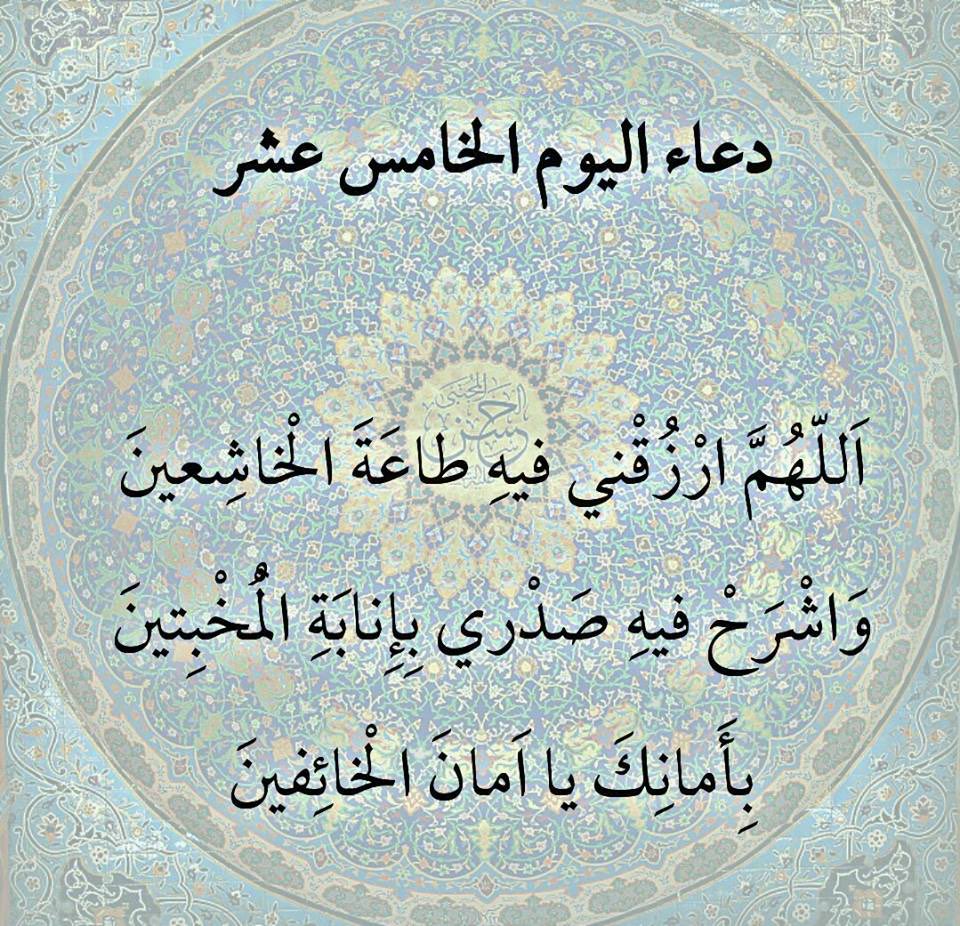 دعاء اليوم الخامس عشر
اَللّهُمَّ ارْزُقْني فيهِ طاعَةَ الْخاشِعينَ
وَاشْرَحْ فيهِ صَدْري بِإِنابَةِ الْمُخْبِتينَ
بِأَمانِكَ يا اَمانَ الْخائِفينَ